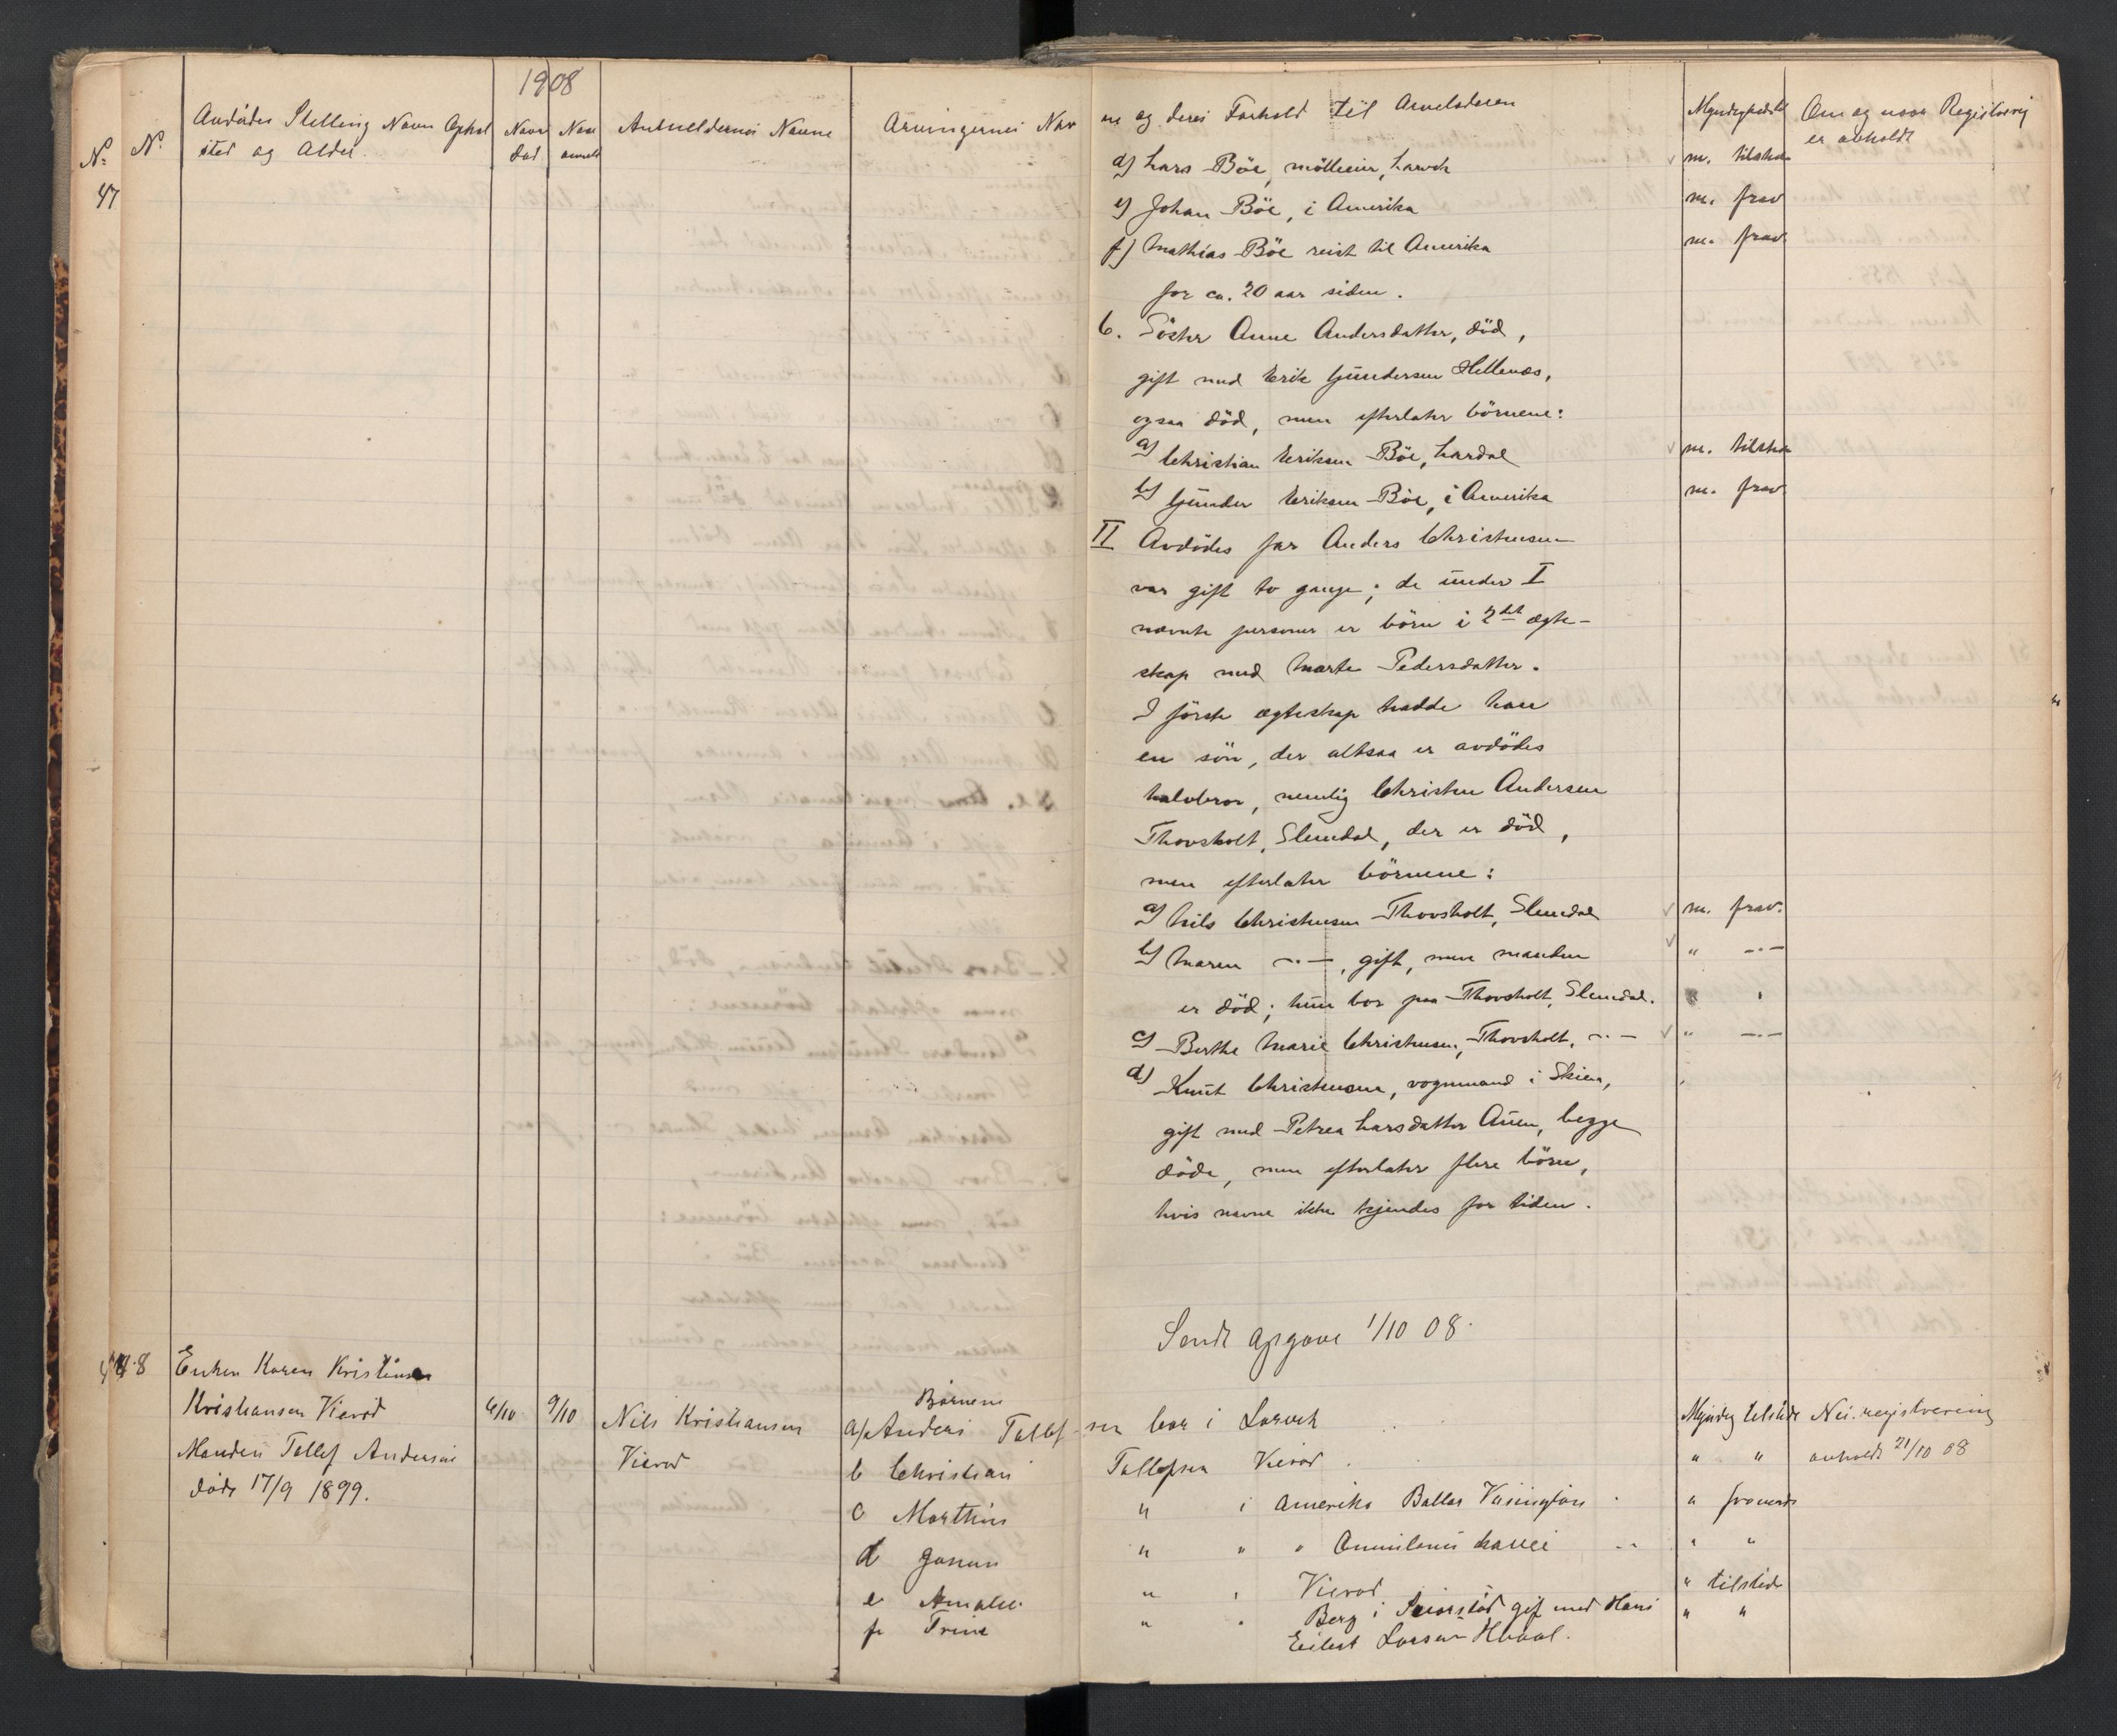 1908
No. No. Avdødes Stilling Navn Ophol
sted og Alder.
Naar død
Naar anmeldt
Anmeldernes Navne
Arvingernes Navne og deres Forhold til Arveladeren
Myndighed
Om og naar Registrering er avholdt
47
d) Lars Böe, möllesvir, Larvik m. tilstede
e) Johan Böe, i Amerika m. frav
f) Mathias Böe reist til Amerika m. frav.
for ca. 20 aar siden.
6. Söster Anne Andersdatter, död,
gift med Erik Gundersen Hellenes,
ogsaa död, men efterlater börnene:
a) Christian Eriksen Böe, Lardal m. tilstede
b) Gunder Eriksen Böe, i Amerika m. frav
II Avdödes far Anders Christensen
var gift to gange; de under I
nævnte personer er börn i 2det egte-
skap med Marte Pedersdatter.
I förste egteskap hadde han
en sön, der altsaa er avdödes
halvbror, nemlig Christen Andersen
Thovsholt, Slemdal, der er död,
men efterlater börnene:
a) Nils Christensen Thovsholt, Slemdal m. frav.
b) Maren -"-, gift, men manden " -"-
er död; hun bor paa Thovsholt, Slemdal.
c) Berthe Marie Christensen, Thovsholt, -"- " -"-
d) Knut Christensen, vognmand i Skien,
gift med Petrea Larsdatter Auen, begge
döde, men efterlater flere börn,
hvis navne ikke kjendes for tiden.
Sendt opgave 1/10 08.
48 Enken Karen Kristine
Kristiansen Vierød 4/10 9/10 Nils Kristiansen
Vierød
Manden Tollef Andersen
døde 17/9 1899.
Børnene
a/ Anders Tollefsen bor i Larvik Myndig tilstede Nei. registrering
b Christian Tollefsen Vierød. " " avholdt 21/10 08
c Marthin " i Amerika Ballar Vasington " fraværende
d " " " " "
e Amalie " " Vierød " tilstede
f Trine " " Berg i gif med Hans " "
Eilert Larsen Hvaal.